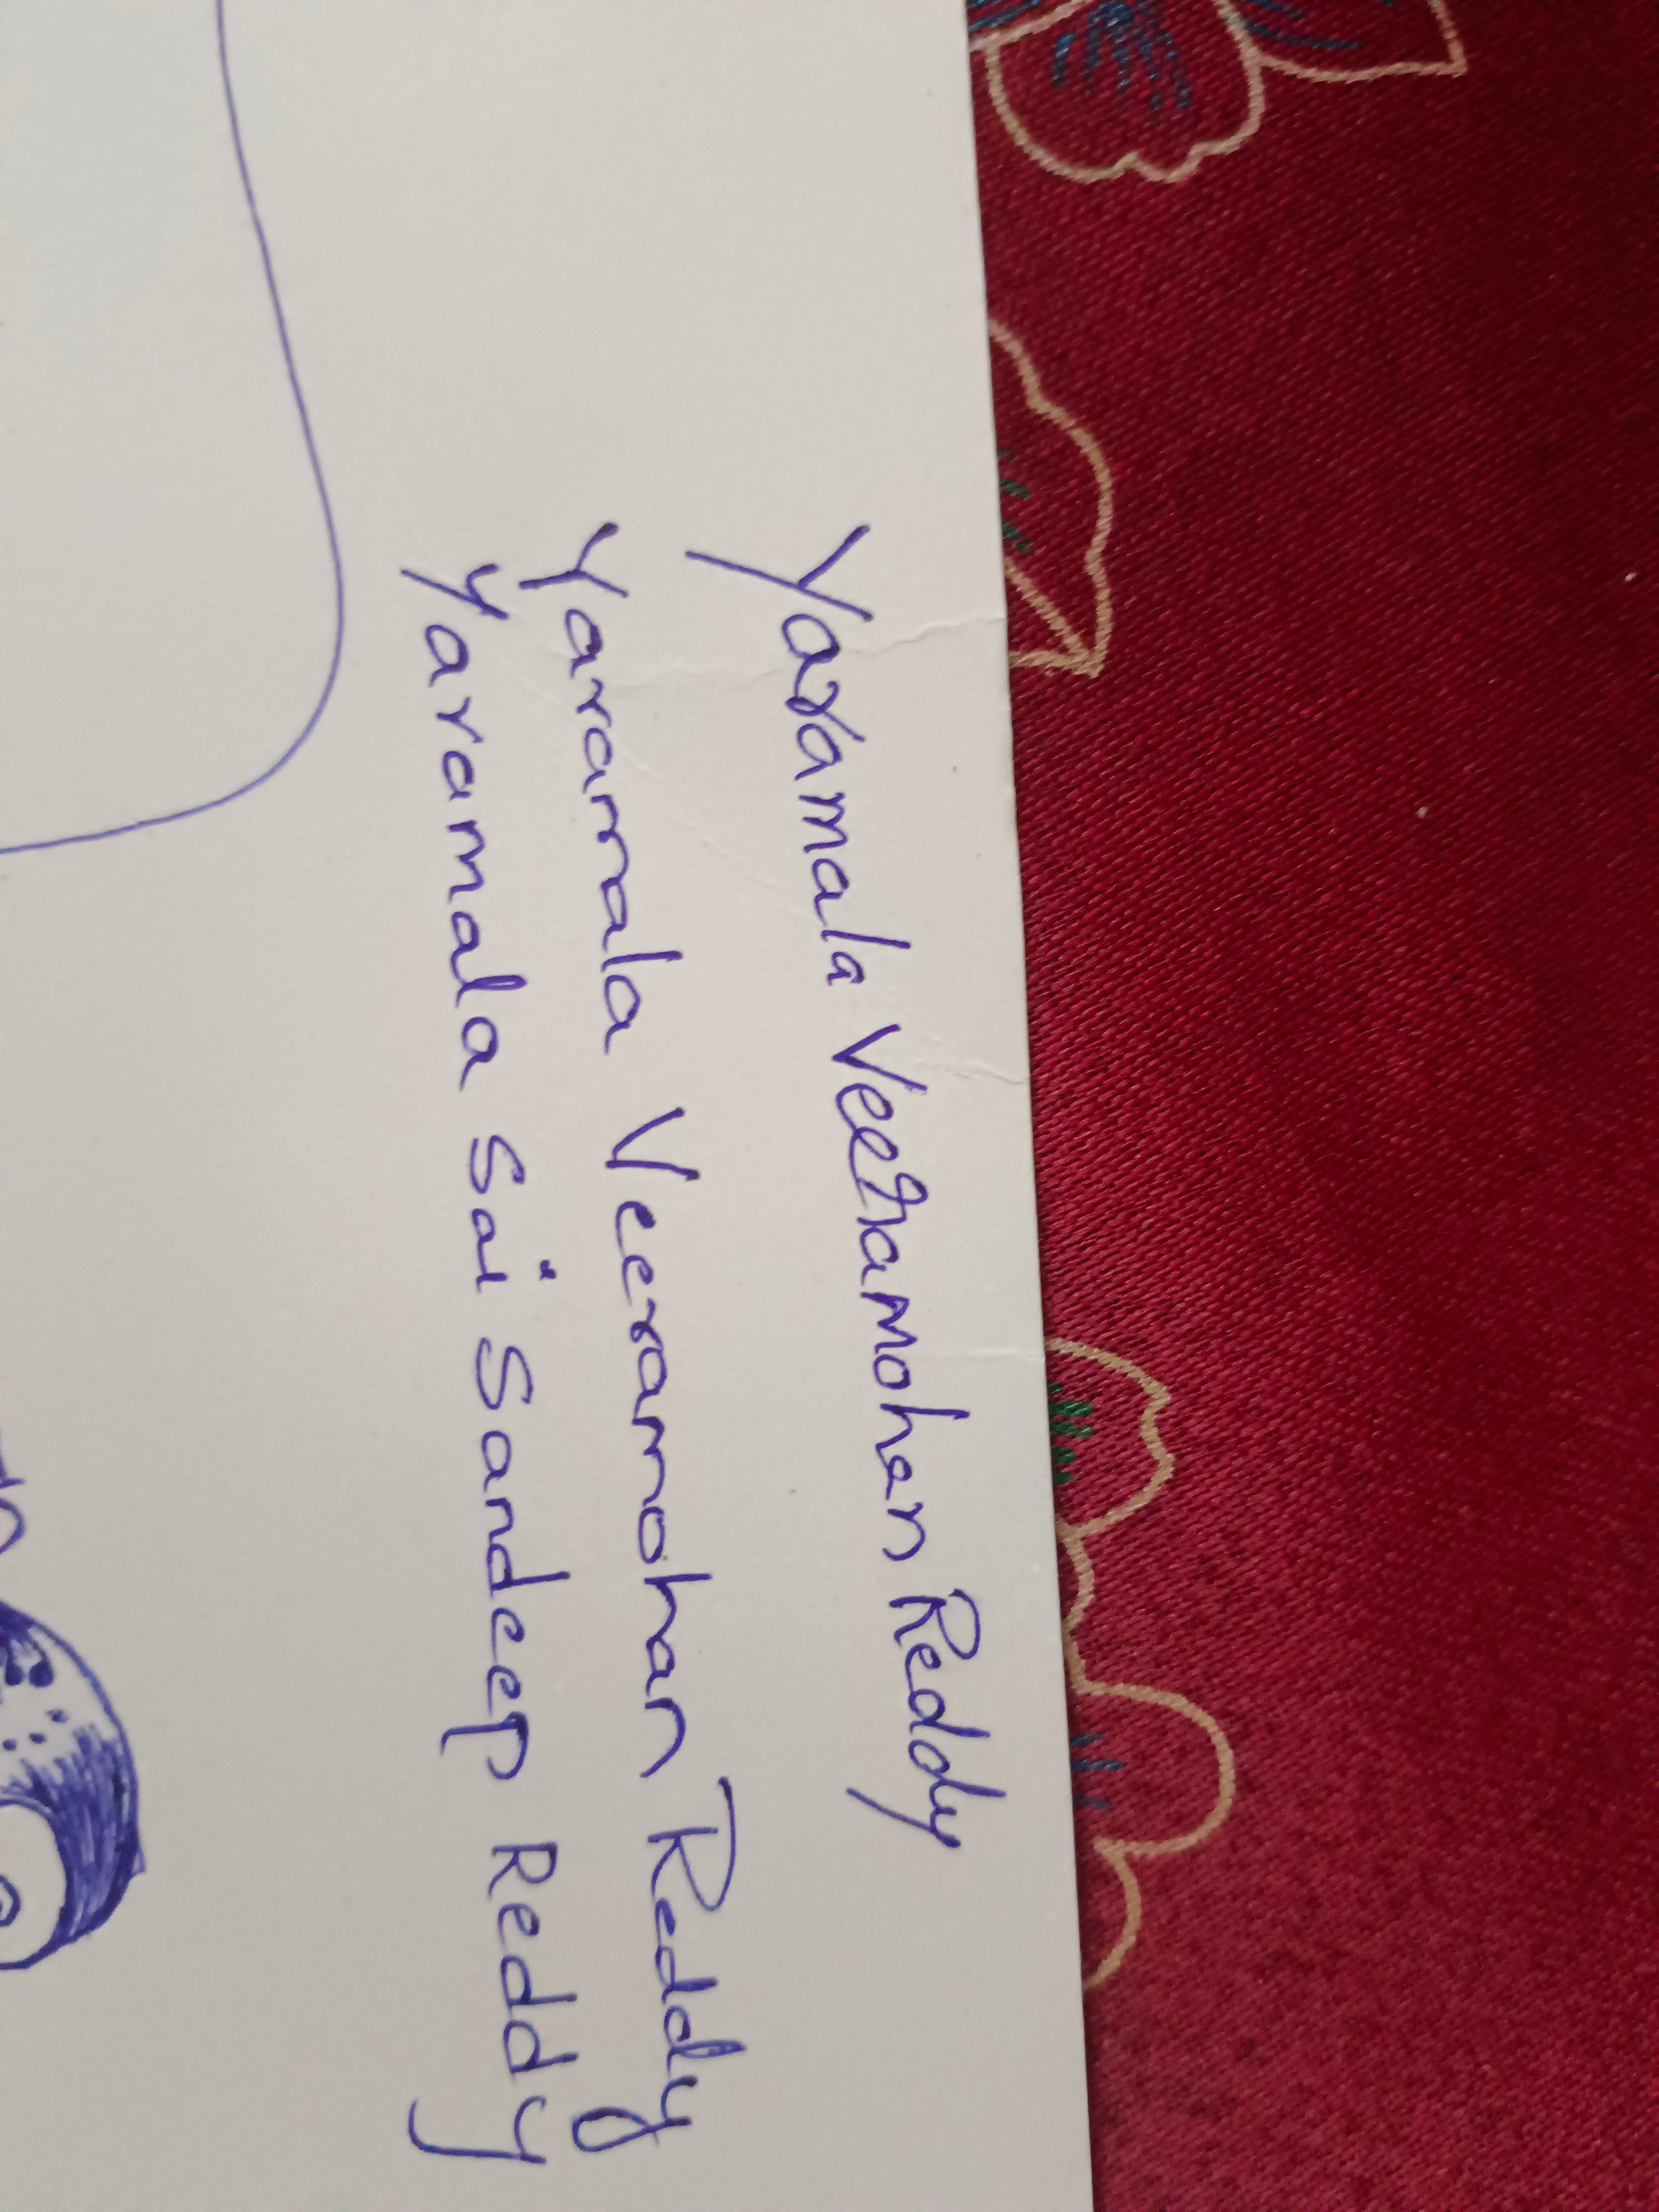 Yaramala Veeramohan Reddy
Yaramala Veeramohan Reddy
Yaramala Sai Sandeep Reddy